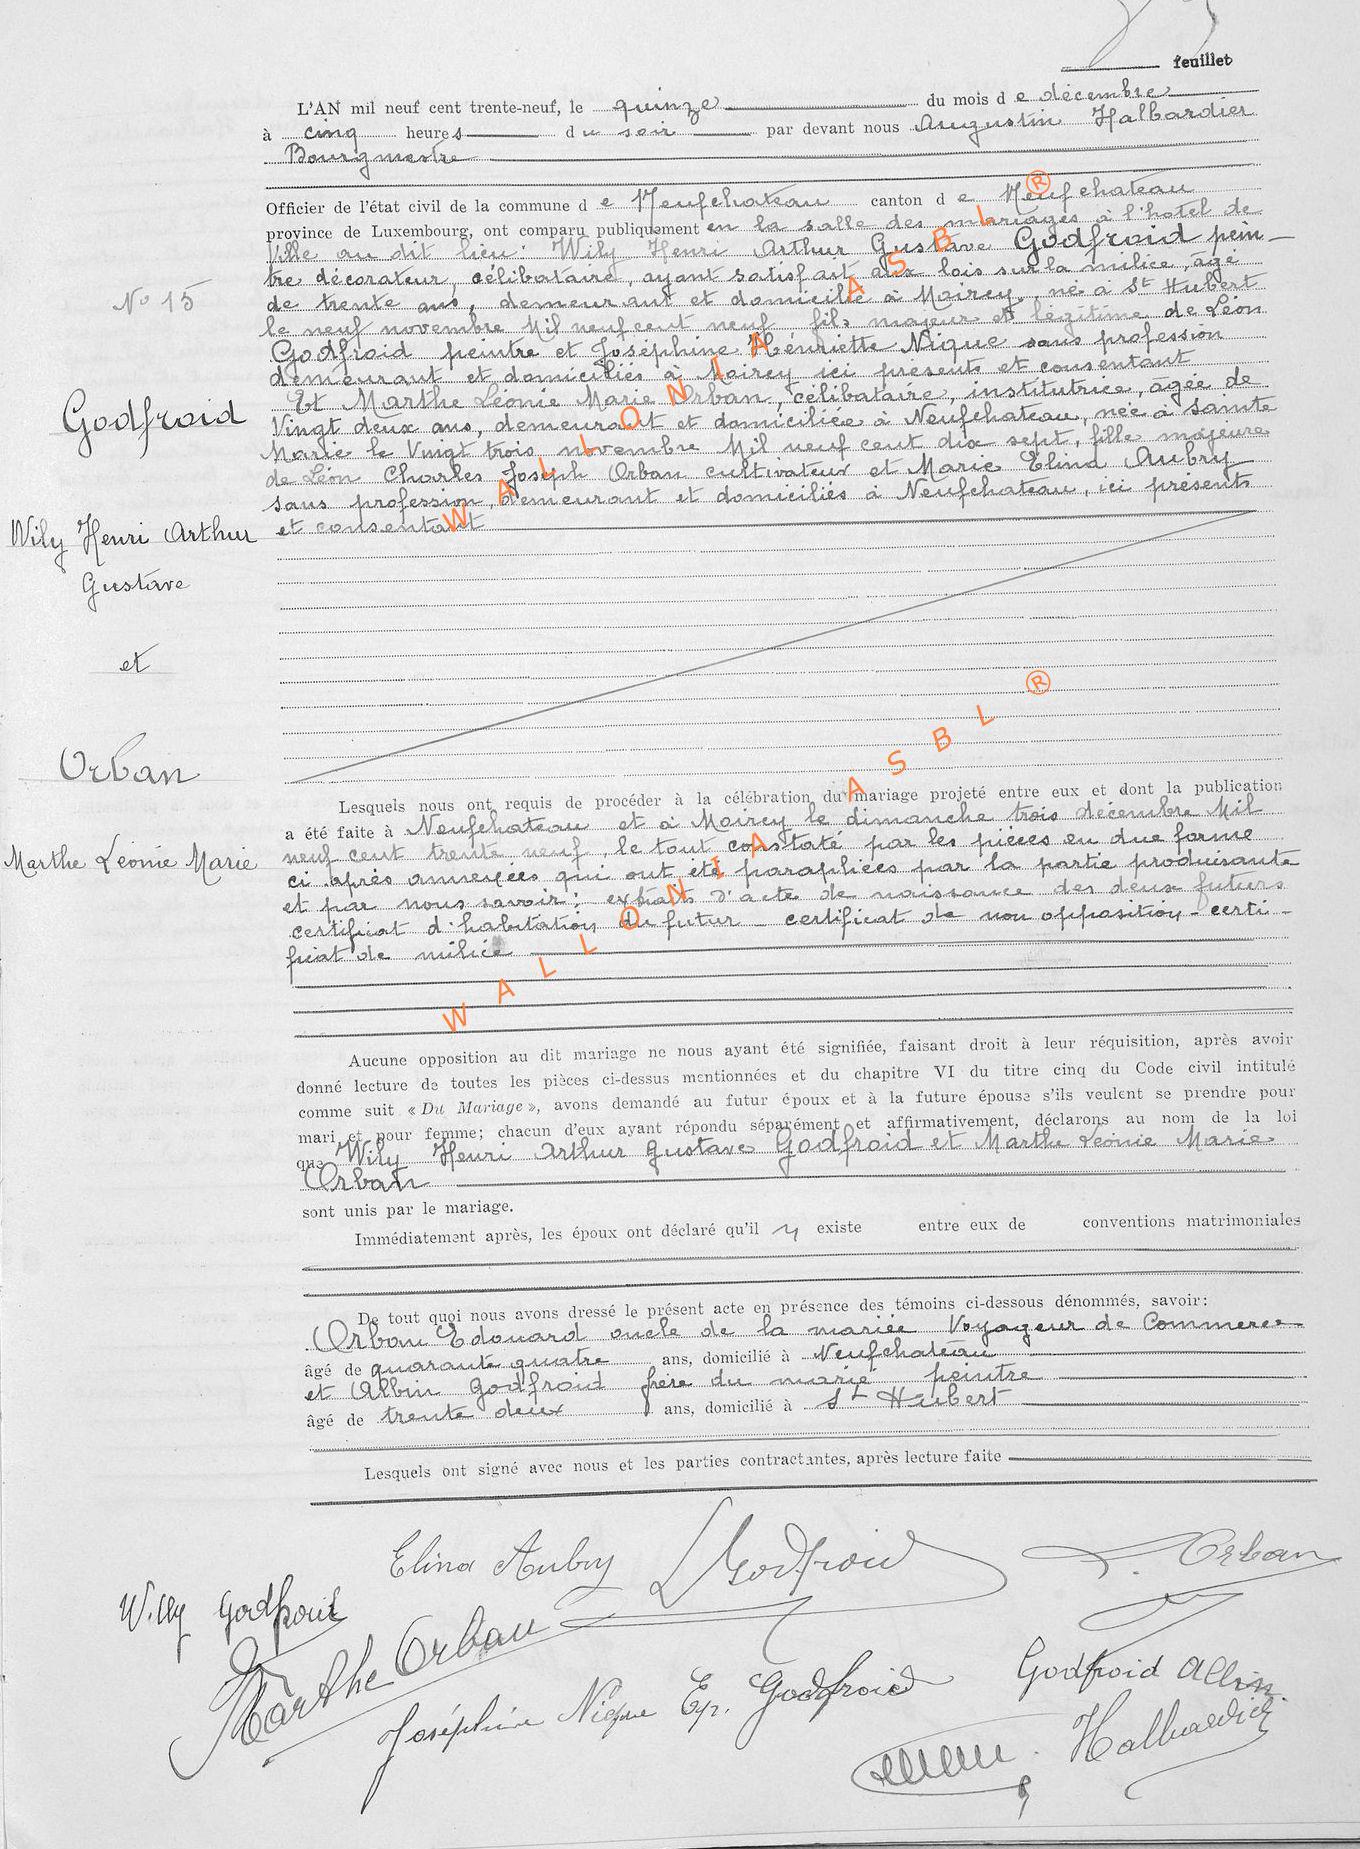 feuillet
L'AN mil neuf cent trente-neuf, le quinze du mois d e décembre
à cinq heures du soir par devant nous Augustin Halbardier
Bourgmestre
Officier de l'état civil de la commune d e Neufchateau canton d e Neufchateau
province de Luxembourg, ont comparu publiquement en la salle des mariages à l'hotel de
Ville au dit lieu : Wily Henri Arthur Gustave Godfroid pein-
tre décorateur, célibataire, ayant satisfait aux lois sur la milice, âgé
de trente ans, demeurant et domicilié à Moircy, né à St Hubert
N° 15
le neuf novembre Mil neuf cent neuf fils majeur et légitime de Léon
Godfroid peintre et Joséphine Henriette Nique sans profession
demeurant et domiciliés à Moircy ici présents et consentant
Et Marthe Léonie Marie Orban, célibataire, institutrice, agée de
Godfroid
Vingt deux ans, demeurant et domiciliée à Neufchateau, née à Sainte
Marie le Vingt trois novembre Mil neuf cent dix sept, fille majeure
de Léon Charles Joseph Orban cultivateur et Marie Elina Aubry
sans profession, demeurant et domiciliés à Neufchateau, ici présents
et consentant
Wily Henri Arthur
Gustave
et
Orban
Marthe Léonie Marie
WALLONIA ASBL ®
Lesquels nous ont requis de procéder à la célébration du mariage projeté entre eux et dont la publication
a été faite à Neufchateau et à Moircy le dimanche trois décembre Mil
neuf cent trente neuf, le tout constaté par les pièces en due forme
ci après annexées qui ont été paraphées par la partie produisante
et par nous savoir : extraits d'acte de naissance des deux futurs
certificat d'habitation du futur - certificat de non opposition - certi-
ficat de milice
WALLONIA ASBL ®
Aucune opposition au dit mariage ne nous ayant été signifiée, faisant droit à leur réquisition, après avoir
donné lecture de toutes les pièces ci-dessus mentionnées et du chapitre VI du titre cinq du Code civil intitulé
comme suit « Du Mariage », avons demandé au futur époux et à la future épouse s'ils veulent se prendre pour
mari et pour femme; chacun d'eux ayant répondu séparément et affirmativement, déclarons au nom de la loi
que Wily Henri Arthur Gustave Godfroid et Marthe Léonie Marie
Orban
sont unis par le mariage.
Immédiatement après, les époux ont déclaré qu'il y existe entre eux de conventions matrimoniales
De tout quoi nous avons dressé le présent acte en présence des témoins ci-dessous dénommés, savoir:
Orban Edouard oncle de la mariée Voyageur de Commerce
âgé de quarante quatre ans, domicilié à Neufchateau
et Albin Godfroid frère du marié peintre
âgé de trente deux ans, domicilié à St Hubert
Lesquels ont signé avec nous et les parties contractantes, après lecture faite
Elina Aubry L Godfroid Orban
Willy Godfroid
Marthe Orban
Joséphine Nique Ep. Godfroid Godfroid Albin
Halbardier